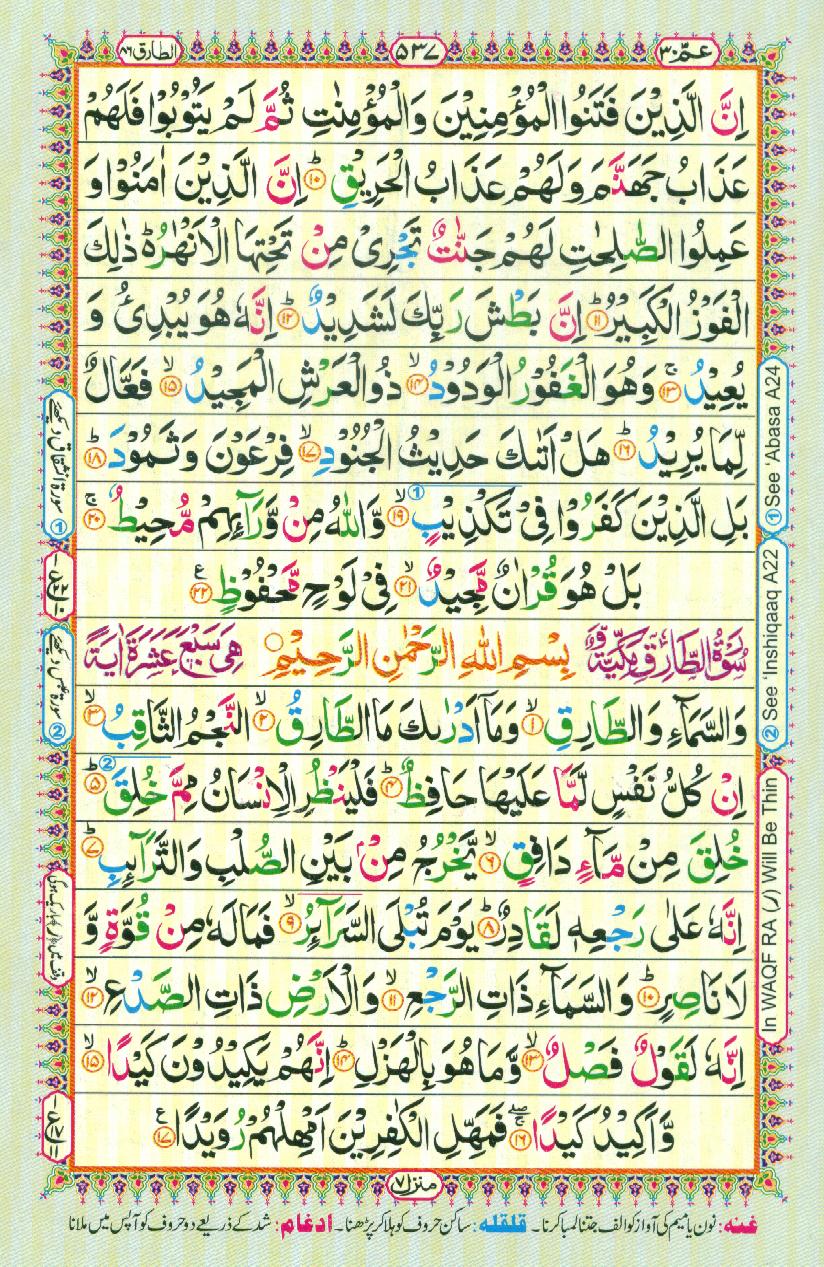 عمّ ٣٠
٥٣٧
الطارق ٨٦
اِنَّ الَّذِيْنَ فَتَنُوا الْمُؤْمِنِيْنَ وَالْمُؤْمِنٰتِ ثُمَّ لَمْ يَتُوْبُوْا فَلَهُمْ
عَذَابُ جَهَنَّمَ وَلَهُمْ عَذَابُ الْحَرِيْقِ ؕ‏﴿۱۰﴾ اِنَّ الَّذِيْنَ اٰمَنُوْا وَ
عَمِلُوا الصّٰلِحٰتِ لَهُمْ جَنّٰتٌ تَجْرِىْ مِنْ تَحْتِهَا الْاَنْهٰرُ ؕؔ ذٰلِكَ
الْفَوْزُ الْكَبِيْرُ ؕ﴿۱۱﴾ اِنَّ بَطْشَ رَبِّكَ لَشَدِيْدٌ ؕ﴿۱۲﴾ اِنَّهٗ هُوَ يُبْدِئُ وَ
يُعِيْدُ ۚ﴿۱۳﴾ وَهُوَ الْغَفُوْرُ الْوَدُوْدُ ۙ﴿۱۴﴾ ذُو الْعَرْشِ الْمَجِيْدُ ۙ﴿۱۵﴾ فَعَّالٌ
لِّمَا يُرِيْدُ ؕ﴿۱۶﴾ هَلْ اَتٰٮكَ حَدِيْثُ الْجُنُوْدِ ۙ﴿۱۷﴾ فِرْعَوْنَ وَثَمُوْدَ ؕ﴿۱۸﴾
بَلِ الَّذِيْنَ كَفَرُوْا فِىْ تَكْذِيْبٍ ① ۙ﴿۱۹﴾ وَّاللّٰهُ مِنْ وَّرَآئِهِمْ مُّحِيْطٌ ۚ﴿۲۰﴾
بَلْ هُوَ قُرْاٰنٌ مَّجِيْدٌ ۙ﴿۲۱﴾ فِىْ لَوْحٍ مَّحْفُوْظٍ ﴿۲۲﴾ ع
سُوْرَةُ الطَّارِقِ مَكِّيَّةٌ بِسْمِ اللهِ الرَّحْمٰنِ الرَّحِيْمِ هِىَ سَبْعَ عَشَرَةَ اٰيَةً
وَالسَّمَآءِ وَالطَّارِقِ ۙ﴿۱﴾ وَمَاۤ اَدْرٰٮكَ مَا الطَّارِقُ ۙ﴿۲﴾ النَّجْمُ الثَّاقِبُ ۙ﴿۳﴾
اِنْ كُلُّ نَفْسٍ لَّمَّا عَلَيْهَا حَافِظٌ ؕ﴿۴﴾ فَلْيَنْظُرِ الْاِنْسَانُ مِمَّ خُلِقَ ② ؕ﴿۵﴾
خُلِقَ مِنْ مَّآءٍ دَافِقٍ ۙ﴿۶﴾ يَّخْرُجُ مِنْۢ بَيْنِ الصُّلْبِ وَالتَّرَآئِبِ ؕ﴿۷﴾
اِنَّهٗ عَلٰى رَجْعِهٖ لَقَادِرٌ ؕ﴿۸﴾ يَوْمَ تُبْلَى السَّرَآئِرُ ۙ﴿۹﴾ فَمَا لَهٗ مِنْ قُوَّةٍ وَّ
لَا نَاصِرٍ ؕ﴿۱۰﴾ وَالسَّمَآءِ ذَاتِ الرَّجْعِ ۙ﴿۱۱﴾ وَالْاَرْضِ ذَاتِ الصَّدْعِ ۙ﴿۱۲﴾
اِنَّهٗ لَقَوْلٌ فَصْلٌ ۙ﴿۱۳﴾ وَّمَا هُوَ بِالْهَزْلِ ؕ﴿۱۴﴾ اِنَّهُمْ يَكِيْدُوْنَ كَيْدًا ۙ﴿۱۵﴾
وَّاَكِيْدُ كَيْدًا ۚۖ﴿۱۶﴾ فَمَهِّلِ الْكٰفِرِيْنَ اَمْهِلْهُمْ رُوَيْدًا ﴿۱۷﴾ ع
① See 'Abasa A24
② See 'Inshiqaaq A22
In WAQF RA (ر) Will Be Thin
① سورۃ انشقاق دیکھئے
② سورۃ عبس دیکھئے
منزل ٧
غنہ: نون یا میم کی آواز کو الف جتنا لمبا کرنا۔ قلقلہ: ساکن حروف کو ہلا کر پڑھنا۔ ادغام: شد کے ذریعے دو حروف کو آپس میں ملانا